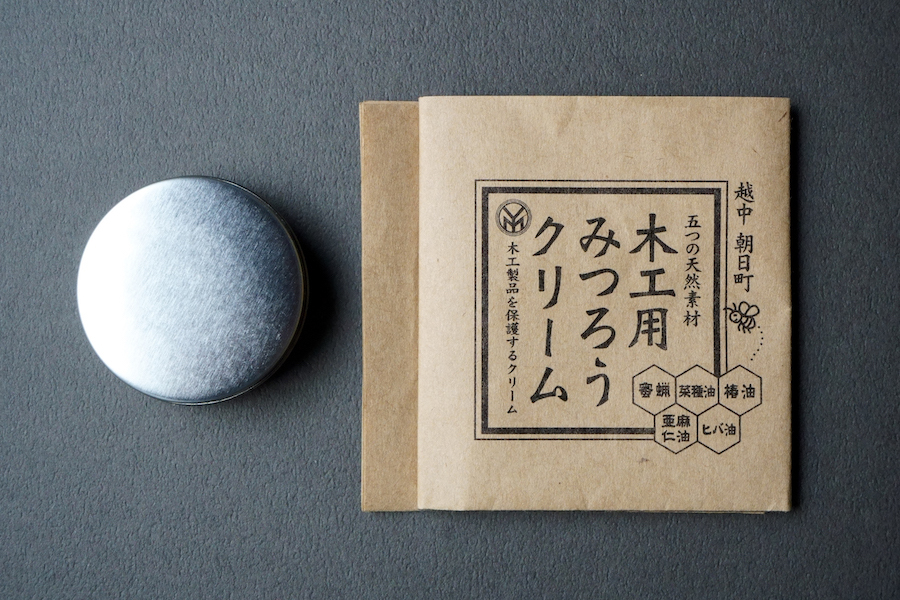 越中 朝日町
五つの天然素材
木工用
みつろう
クリーム
木工製品を保護するクリーム
蜜蝋
菜種油
椿油
亜麻
仁油
ヒバ油